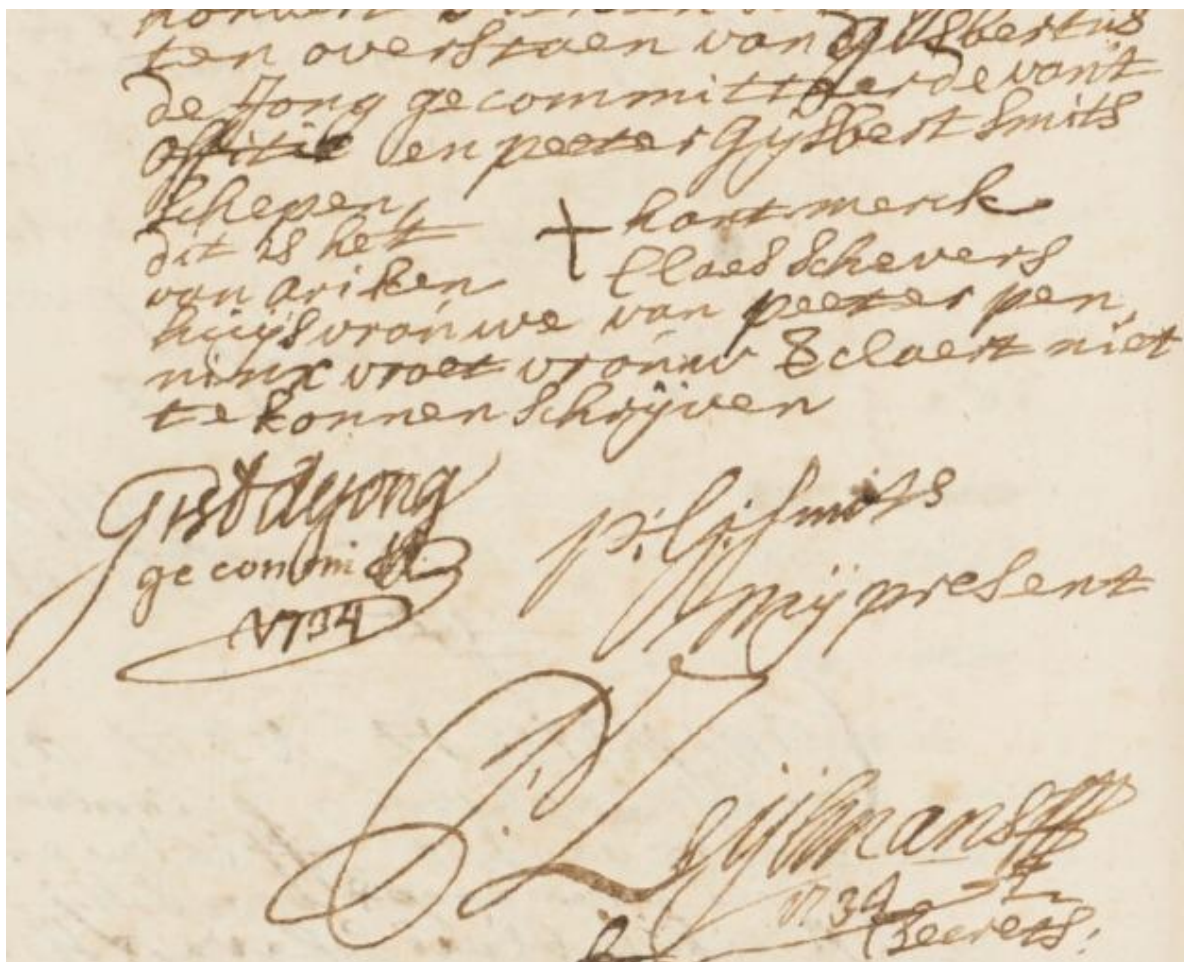 ten overstaen van Gijsbertus
de Jong gecommitteerde vant
offitie en peeter Gijsbert Smits
schepen,
dit is het + hantmerck
van ariken Claes Schevers
huijsvrouwe van peeter pen,
ninx vroet vrouw verclaert niet
te konnen Schrijven
Gisb de Jong
gecommitt
1734
p: G: Smits
mij present
P: Zeijlmans
1734
Secrets: